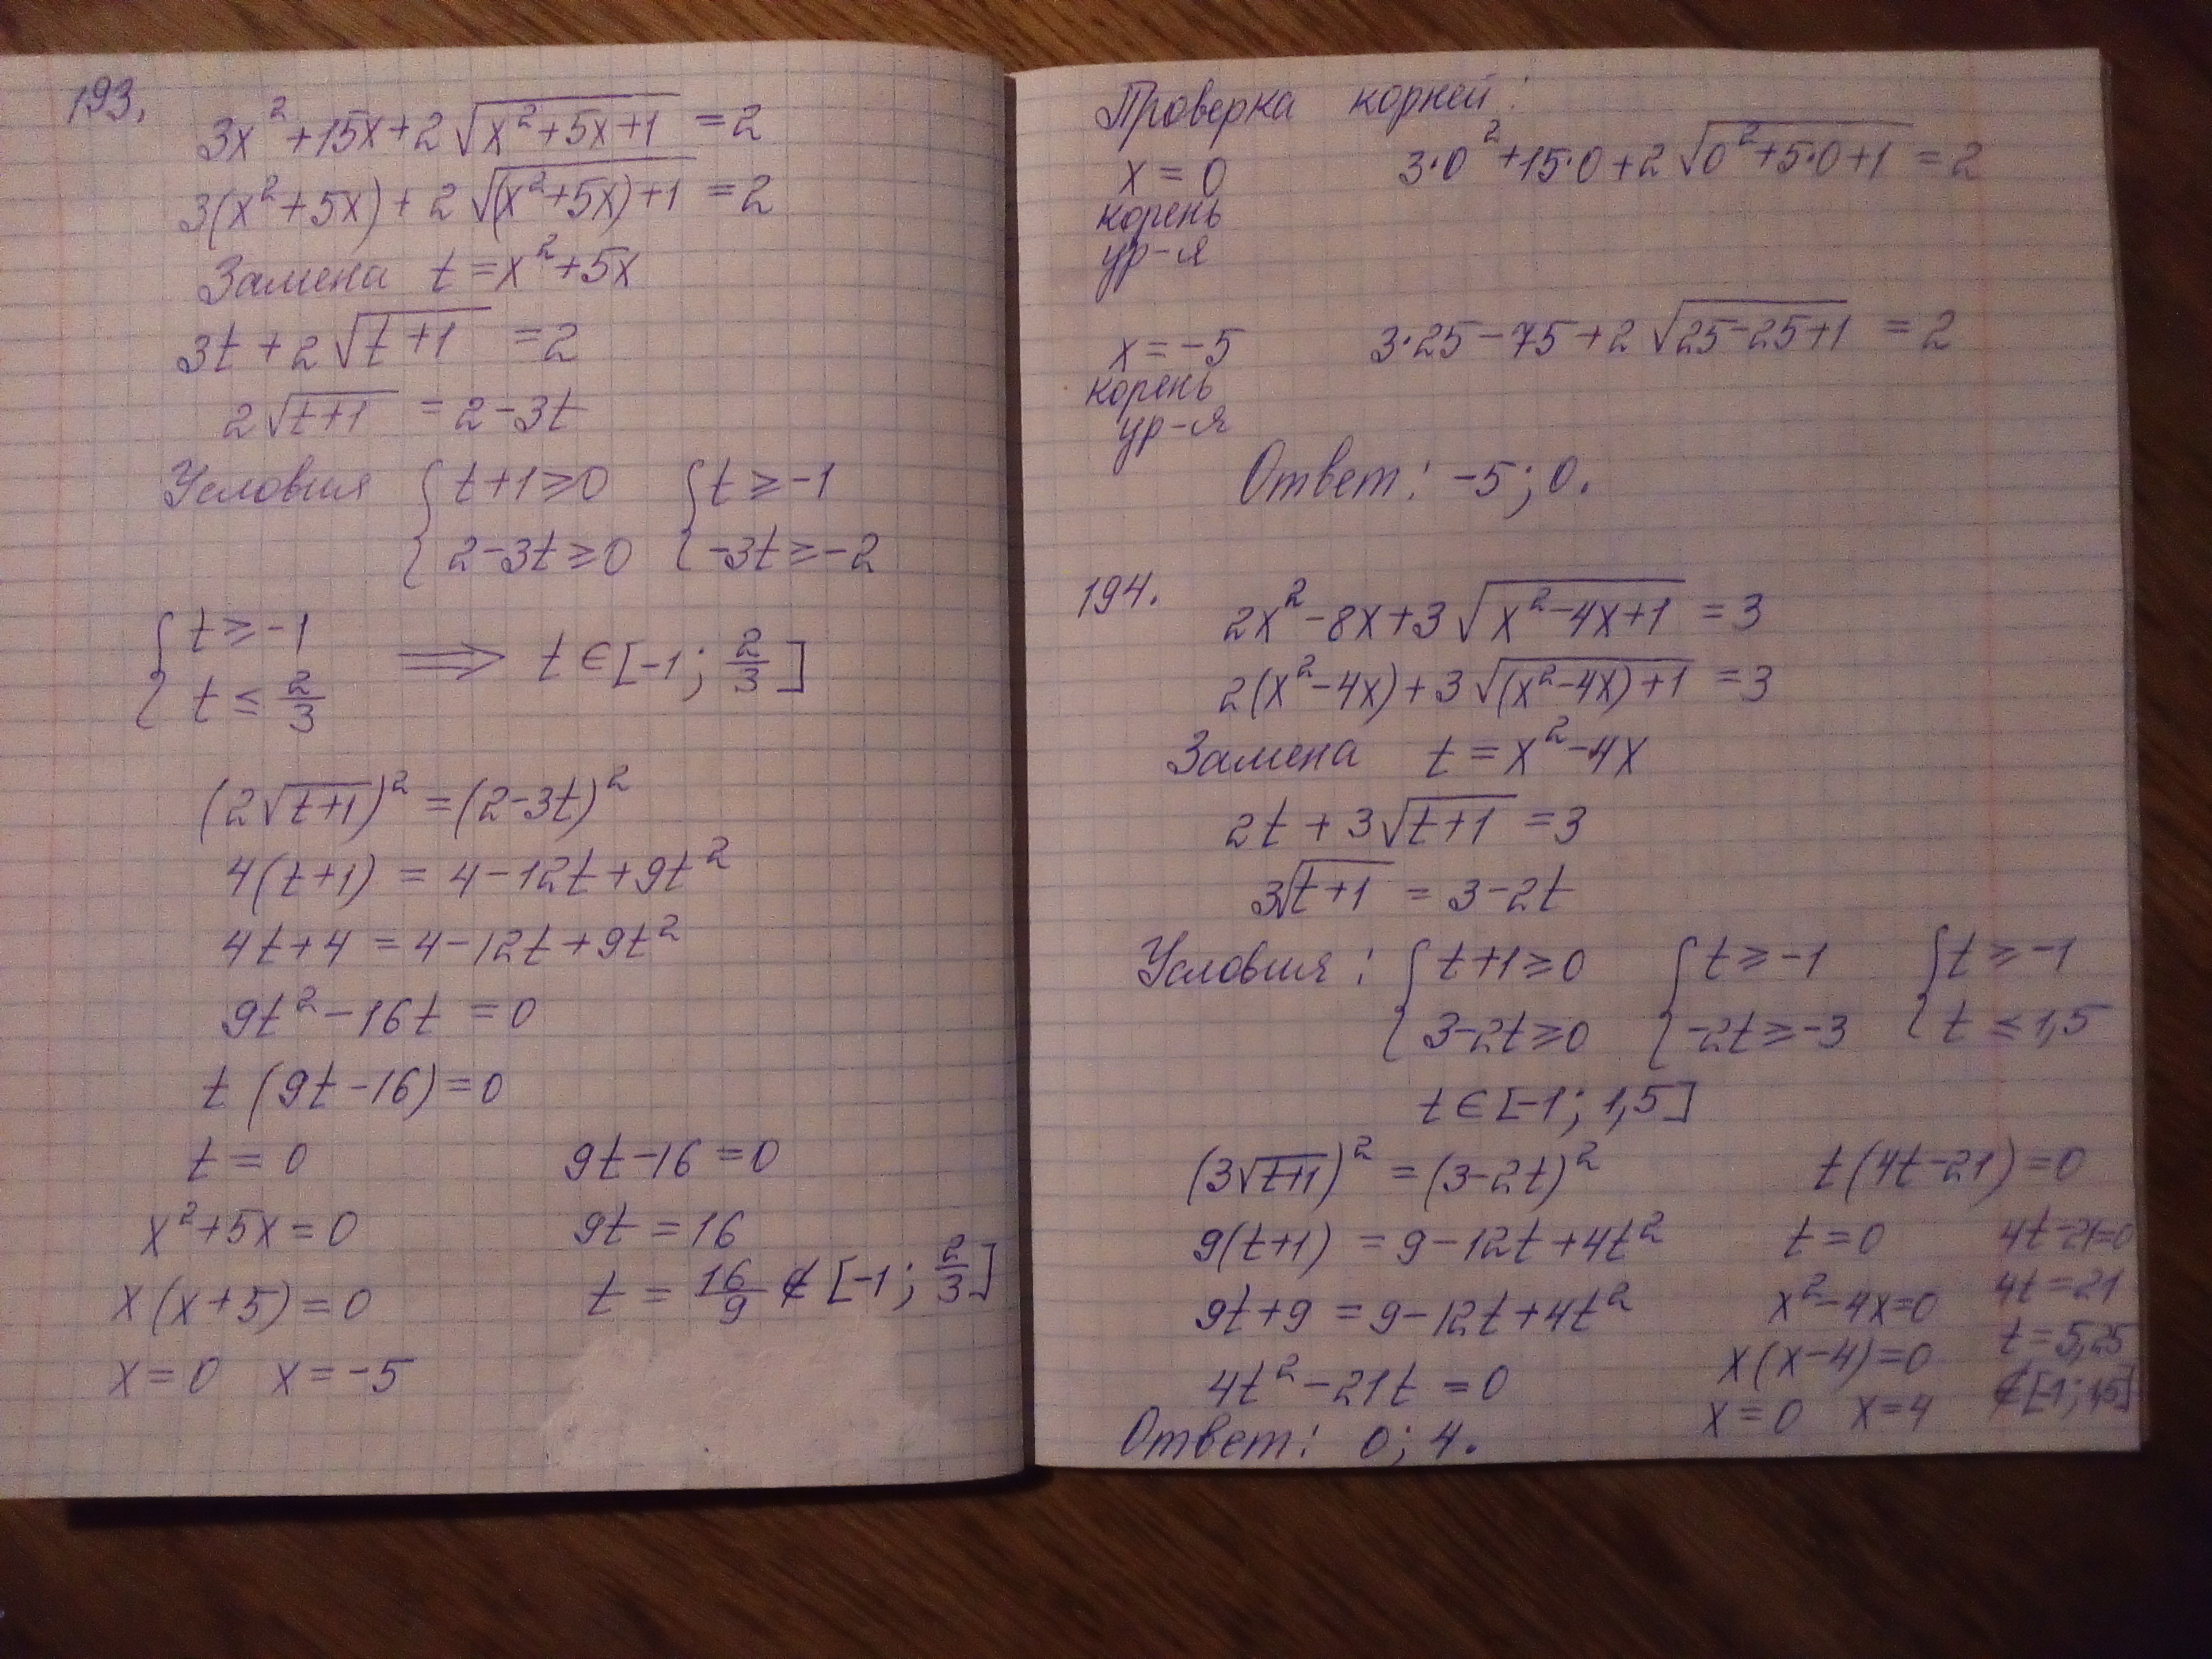 193.
3x²+15x+2√(x²+5x+1) =2
3(x²+5x)+2√((x²+5x)+1) =2
Замена t=x²+5x
3t+2√(t+1) =2
2√(t+1) =2-3t
Условия { t+1≥0 { t≥-1
2-3t≥0 -3t≥-2
{ t≥-1
t≤2/3 ⟹ t∈[-1; 2/3]
(2√(t+1))²=(2-3t)²
4(t+1) = 4-12t+9t²
4t+4 = 4-12t+9t²
9t²-16t =0
t (9t-16)=0
t=0 9t-16=0
x²+5x=0 9t=16
x(x+5)=0 t= 16/9 ∉ [-1; 2/3]
x=0 x=-5
Проверка корней:
x=0 3·0²+15·0+2√(0²+5·0+1) =2
корень
ур-я
x=-5 3·25-75+2√(25-25+1) =2
корень
ур-я
Ответ: -5; 0.
194.
2x²-8x+3√(x²-4x+1) =3
2(x²-4x)+3√((x²-4x)+1) =3
Замена t=x²-4x
2t+3√(t+1) =3
3√(t+1) =3-2t
Условия: { t+1≥0 { t≥-1 { t≥-1
3-2t≥0 -2t≥-3 t≤1,5
t∈[-1; 1,5]
(3√(t+1))²=(3-2t)²
9(t+1) =9-12t+4t²
9t+9 =9-12t+4t²
4t²-21t =0
t(4t-21)=0
t=0 4t-21=0
x²-4x=0 4t=21
x(x-4)=0 t=5,25
x=0 x=4 ∉[-1; 1,5]
Ответ: 0; 4.